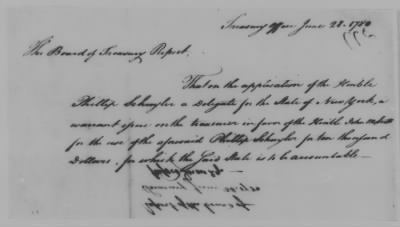 Treasury Office June 28. 1780
The Board of Treasury Report,
That on the application of the Honble
Phillip Schuyler a delegate for the State of New York, a
warrant issue on the treasurer in favor of the Honble John
for the use of the aforesaid Phillip Schuyler for ten thousand
Dollars, for which the said State is to be accountable—